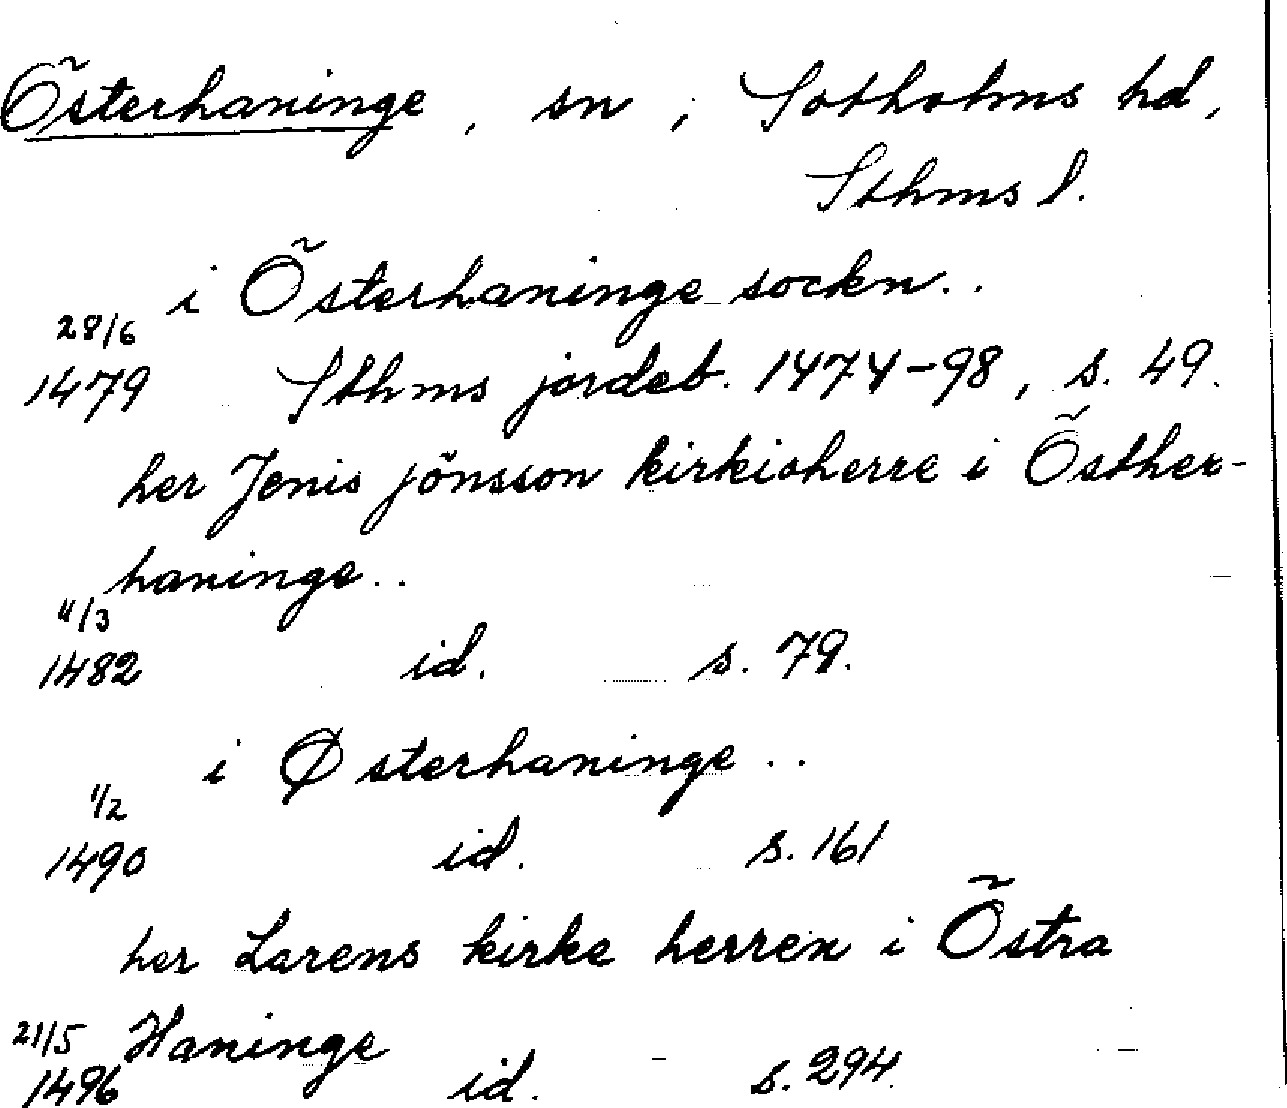 Österhaninge, sn, Sotholms hd,
Sthms l.
i Österhaninge sockn..
28/6
1479 Sthms jordeb. 1474-98, s. 49.
her Jenis jönsson kirkioherre i Östher-
haninge..
11/3
1482 id. s. 79.
i Østerhaninge..
1/2
1490 id. s. 161
her Larens kirke herren i Östra
21/5 Haninge
1496 id. s. 294.